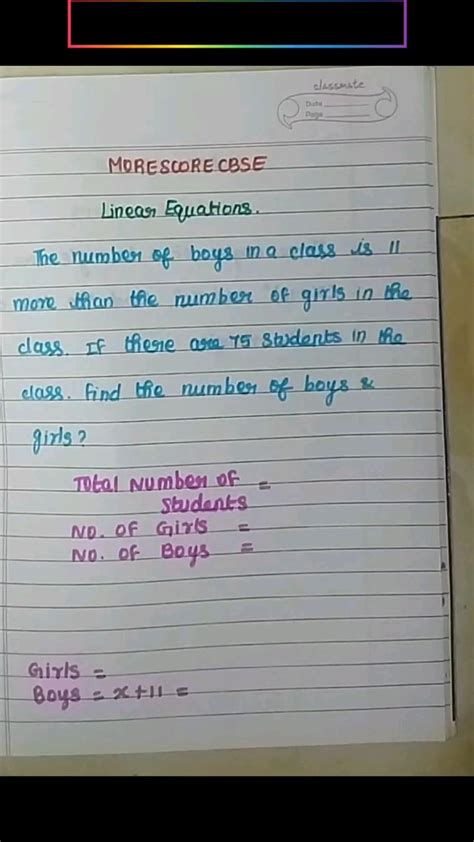 classmate
Date
Page
MORESCORECBSE
Linear Equations.
The number of boys in a class is 11
more than the number of girls in the
class. If there are 75 students in the
class. Find the number of boys &
girls?
Total Number of =
Students
No. of Girls =
No. of Boys =
Girls =
Boys = x+11 =